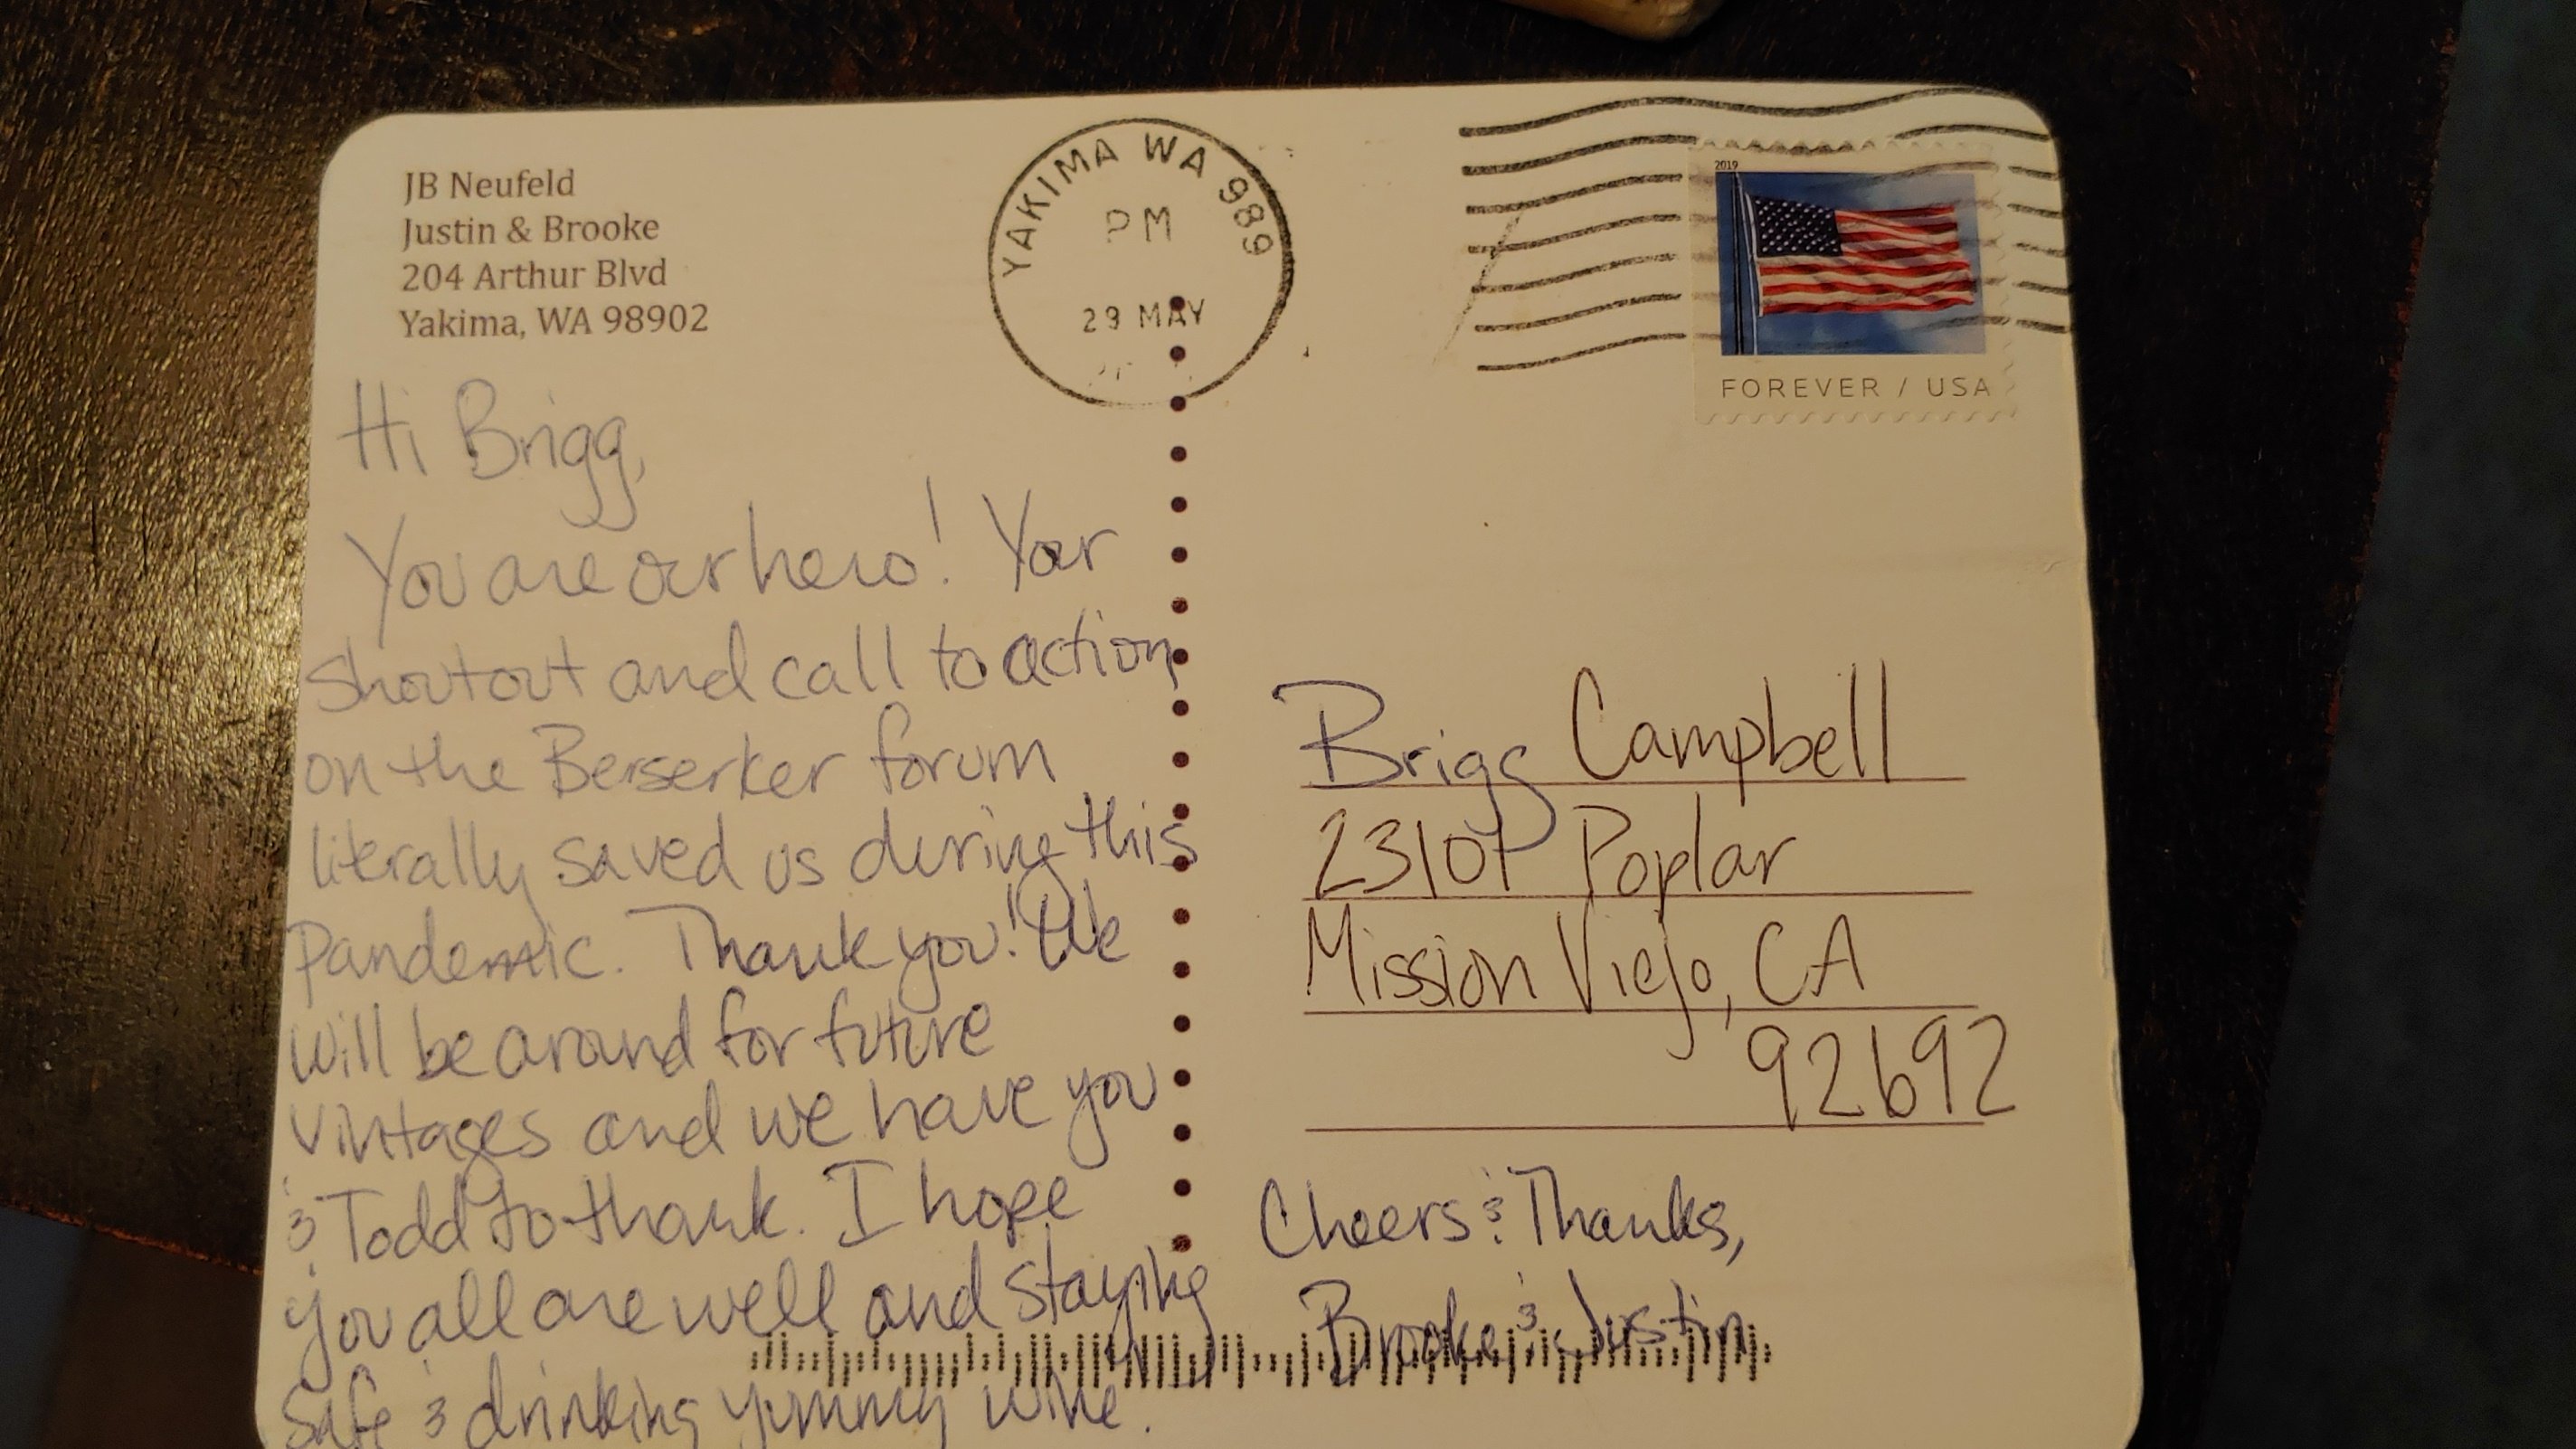 JB Neufeld
Justin & Brooke
204 Arthur Blvd
Yakima, WA 98902
YAKIMA WA 989
PM
29 MAY
2019
FOREVER / USA
Hi Brigg,
You are our hero! Your
shoutout and call to action
on the Berserker forum
literally saved us during this
Pandemic. Thank you! We
will be around for future
vintages and we have you
& Todd to thank. I hope
you all are well and staying
safe & drinking yummy wine.
Brigg Campbell
23107 Poplar
Mission Viejo, CA
92692
Cheers & Thanks,
Brooke & Justin